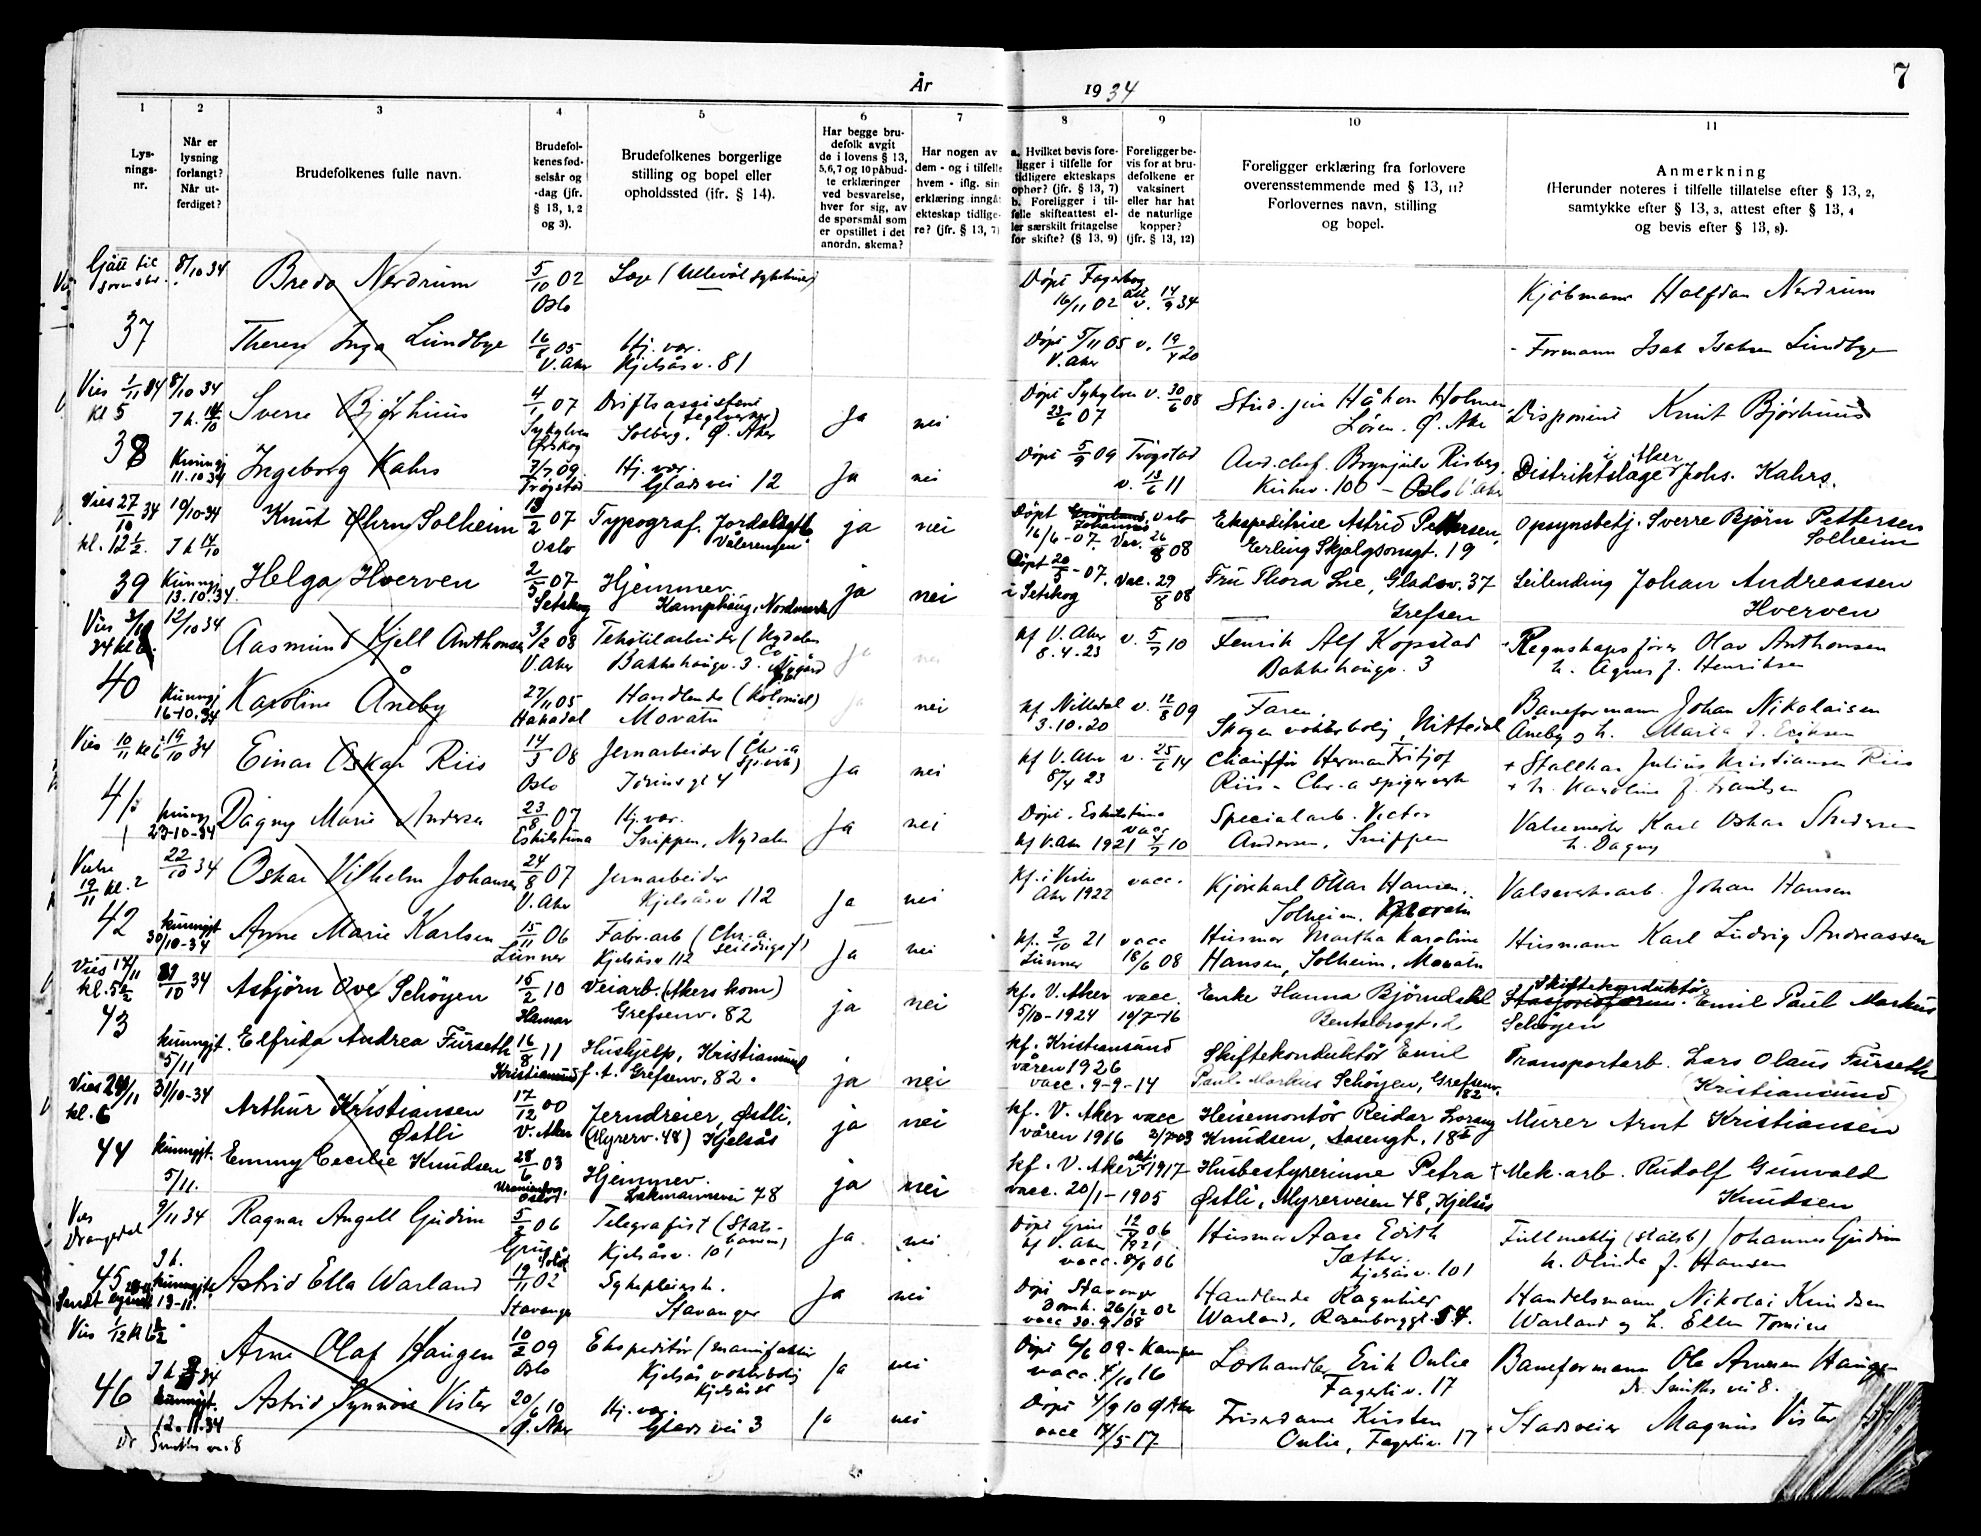 År 1934
7
1 2 3 4 5 6 7 8 9 10 11
Lysningsnr.
Når er lysning forlangt? Når utferdiget?
Brudefolkenes fulle navn.
Brudefolkenes fødselsår og -dag (jfr. § 13, 1, 2 og 3).
Brudefolkenes borgerlige stilling og bopel eller opholdssted (ifr. § 14).
Har begge brudefolk avgit de i lovens § 13, 5,6,7 og 10 påbudte erklæringer ved besvarelse, hver for sig, av de spørsmål som er opstillet i det anordn. skema?
Har nogen av dem - og i tilfelle hvem - iflg. sin erklæring inngåt ekteskap tidligere? (jfr. § 13, 7)
a. Hvilket bevis foreligger i tilfelle for tidligere ekteskaps ophør? (jfr. § 13, 7) b. Foreligger i tilfelle skifteattest eller særskilt fritagelse for skifte? (§ 13, 9)
Foreligger bevis for at brudefolkene er vaksinert eller har hat de naturlige kopper? (jfr. § 13, 12)
Foreligger erklæring fra forlovere overensstemmende med § 13, 11? Forlovernes navn, stilling og bopel.
Anmerkning (Herunder noteres i tilfelle tillatelse efter § 13, 2, samtykke efter § 13, 3, attest efter § 13, 4 og bevis efter § 13, 8).
Gått til 8/10 34 Bredo Nerdrum 5/10 02 Oslo Læge (Ullevål sykehus) Døpt Fagerborg 16/11 02 att v. 14/9 34 Kjøbmann Halfdan Nerdrum
37 Therese Inga Lundbye 16/8 05 V. Aker Hj. vær. Kjelsåsv. 81 Døpt 5/11 05 V. Aker v. 19/4 20 Formann Isak Isaksen Lundbye
Vies 1/11 34 kl 5 8/10 34 Th. 14/10 Sverre Bjørhuus 4/1 07 Sykylven Ørskog Driftsassistent (teglverker) Solberg, Ø. Aker Ja nei Døpt Sykylven 23/6 07 v. 30/6 08 Stud. jur Håkon Holmen Løren, Ø. Aker Disponent Knut Bjørhuus
38 Kunngj 11.10.34 Ingeborg Kahrs 7/7 09 Trøgstad Hj. vær. Glads vei 12 Ja nei Døpt 5/9 09 Trøgstad v. 13/6 11 And. chef. Brynjulv Risberg, Kirkev. 100 - Oslo Distriktslæge i Aker Johs. Kahrs.
Vies 27/10 34 kl. 12½. 10/10-34 Th 14/10 Knut Ørn Solheim 13/2 07 Oslo Typograf. Jordalsgt 6 Vålerengen ja nei Døpt Johannes Oslo 16/6-07. Vac. 26/8 08 Ekspeditrise Astrid Pettersen, Erling Skjalgsonsgt. 19 Opsynsbetj. Sverre Bjørn Pettersen Solheim
39 Kunngj 13.10.34. Helga Hverven 2/5 07 Setskog Hjemmev. Kamphaug, Nordmarka ja nei Døpt 20/5-07. i Setskog Vac. 29/8 08 Fru Thora Lie, Gladsv. 37 Grefsen Leilending Johan Andreassen Hverven
12/10 34 Aasmund Kjell Anthonsen 3/2 08 V. Aker Tekstilarbeider (Nydalen Co) Bakkehaugv. 3. Nygård Ja nei kf V. Aker 8.4.23 v. 5/7 10 Fenrik Alf Kopstad Bakkehaugv. 3 Regnskapsfører Olav Anthonsen h. Agnes f. Henriksen
40 Kunngj 16-10.34 Karoline Åneby 27/11 05 Hakadal Handlende (kolonial) Movatn Ja nei kf. Nittedal 3.10.20 v. 12/8 09 Faren Skogen vokterbolig, Nittedal Baneformann Johan Nikolaisen Åneby og h. Maria f. Eriksen
Vies 10/11 kl 6 19/10 34 Einar Oskar Riis 14/3 08 Oslo Jernarbeider (Chr-a Spigerv.) Ja nei kf V. Aker 8/4 23 v. 25/6 14 Chauffør Herman Fritjof Riis - Chr-a spigerverk Stallkar Julius Kristiansen Riis h. Karoline f. Frantsen
41 kunngj 23-10-34 Dagny Marie Andersen 23/8 07 Eskilstuna Hj. vær. Snippen, Nydalen Ja nei Døpt. Eskilstuna kf V. Aker 1921 vacc 4/7 10 Specialarb. Victor Andersen, Snippen Valsemester Karl Oskar Andersen h. Dagny
19/11 kl. 2 22/10 34 Oskar Vilhelm Johansen 24/8 07 V. Aker Jernarbeider Kjelsåsv 112 Ja nei kf. i Vestre Aker 1922 vacc. Kjørekarl Ottar Hansen. Solheim, Movatn Valseverksarb. Johan Hansen
42 kunngjt 30/10-34 Anne Marie Karlsen 15/11 06 Lunner Fabr.-arb (Chr-a Seildugsf.) Kjelsåsv 112 Ja nei kf. 2/10 21 Lunner vacc 18/6 08 Husmor Martha Karoline Hansen, Solheim, Movatn Husmann Karl Ludvig Andreassen
Vies 17/11 kl. 5½ 10 34 Asbjörn Ove Schöyen 15/2 10 Hamar Veiarb. (Akers kom) Grefsenv. 82 ja nei kf. V. Aker 5/10-1924 vacc. 10/7-16 Enke Hanna Björndahl Bentsebrogt. 2 Skiftekonduktør Emil Paul Markus Schöyen
43 kunngjt. 5/11 Elfrida Andrea Furseth 16/8 11 Kristiansund Hushjelp, Kristiansund f.t. Grefsenv. 82. ja nei kf. Kristiansund våren 1926 vacc. 9-9-14 Skiftekonduktör Emil Paul Markus Schöyen, Grefsenv. 82 Transportarb. Lars Olaus Furseth (Kristiansund)
Vies 24/11 kl. 6 31/10-34 Arthur Kristiansen Østli 17/12 00 V. Aker Jerndreier, Østli, (Myrerv. 48) Kjelsås ja nei kf. V. Aker våren 1916 vacc 2/7-03 Heisemontör Reidar Lorang Knudsen, Aasengt. 18 Murer Arnt Kristiansen
44 kunngjt. 5/11. Emmy Cecilie Knudsen 28/6 03 Uranienborg, Oslo Hjemmev. Lakmannsvei 78 ja nei kf. V. Aker okt. 1917 vacc. 20/1-1905 Husbestyrerinne Petra Østli, Myrerveien 48, Kjelsås Mek. arb. Rudolf Gunvald Knudsen
Vies Drangedal 9/11 34 Ragnar Angell Gudim 5/2 06 Telegrafist (Statsbanen) Kjelsåsv. 101 Ja nei Døpt 12/ 06 kf V. Aker 1921 vacc. 8/8 06 Husmor Aase Edith Sæther kjelsåsv. 101 Fullmektig (statsb) Johannes Gudim h. Olinda f. Hansen
45 Th. kunngjt 13-11. Astrid Ella Warland 19/11 02 Stavanger Sykepleiersk. Stavanger Ja nei Døpt Stavanger Domk. 26/12 02 vacc 30.9.08 Handlende Ragnhild Warland, Rosenborggt. 54. Handelsmann Nikolai Knudsen Warland og h. Ellen Tomine
Vies 1/12 kl Arne Olaf Haugen 10/2 09 Oslo Ekspeditør (manufaktur) Kjelsås vokterbolig Kjelsåsst Ja nei Døpt 6/6 09 - Kampen vacc. 4/10 16 Lærhandler Erik Onlie Fagerliv. 17 Baneformann Ole Arnesen Haugen Dr. Smiths vei 8.
46 kunngjt. 12.11.34 Astrid Synnøve Vister 20/6 10 Ø. Aker Hj. vær. Glads vei 3 Ja nei Døpt 4/9 10 Ø Aker vacc 14/5-17 Friserdame Kirsten Onlie, Fagerliv. 17 Stadsveier Magnus Vister
Dr Smiths vei 8